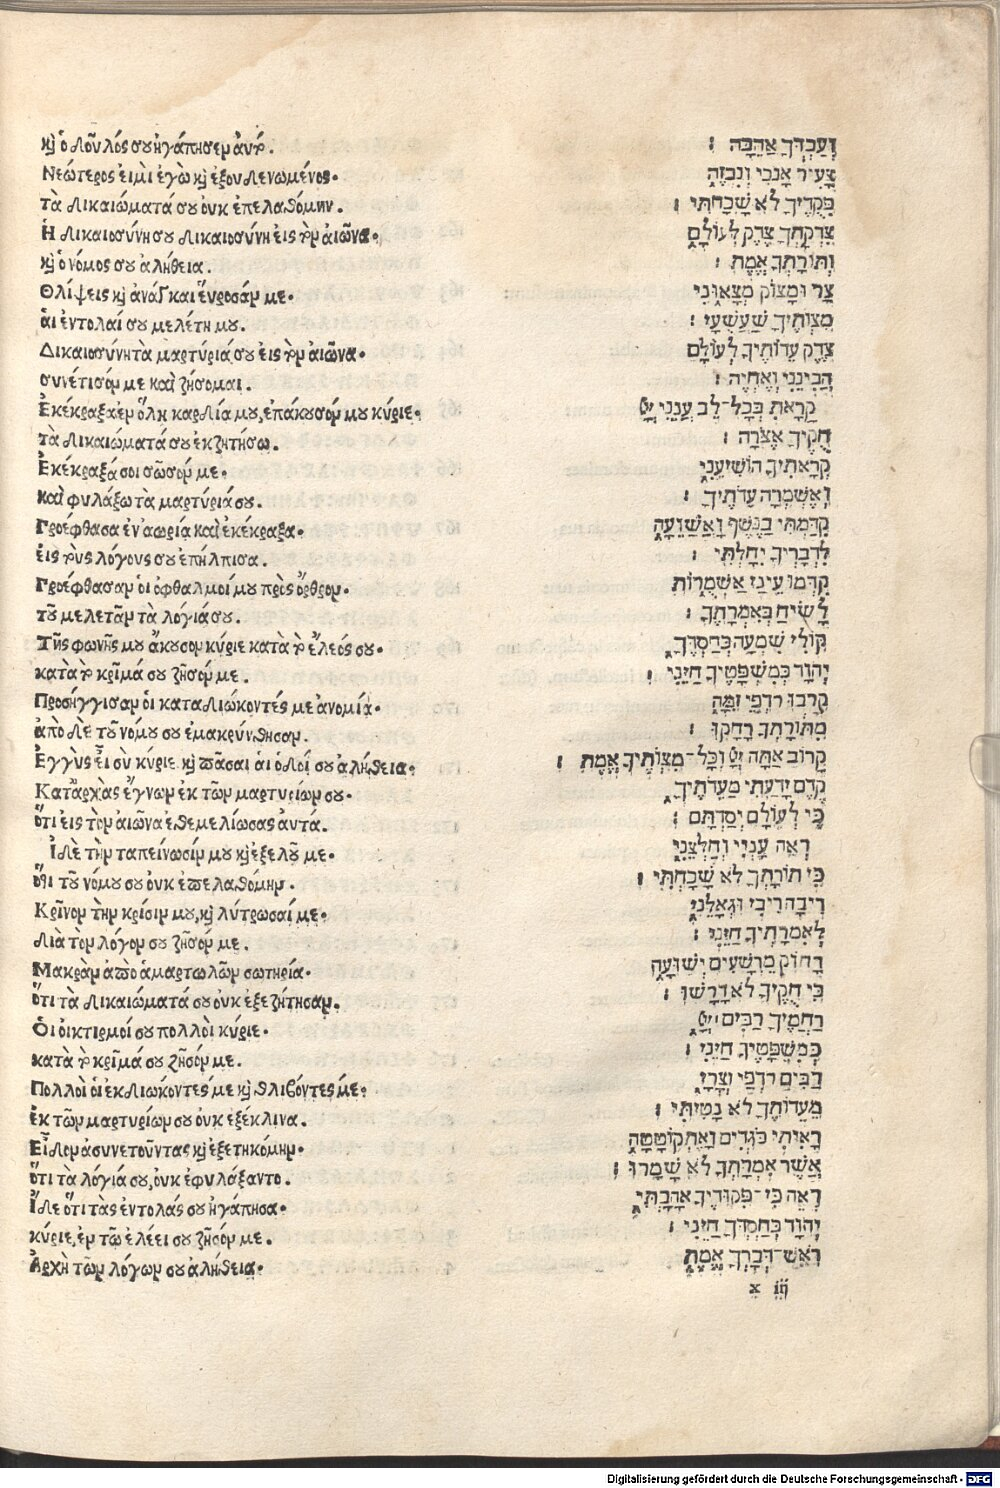 κ ὁ δοῦλός σου ἠγάπησεν ἀυτό.
Νεώτερος ἐιμὶ ἐγὼ κ ἐξουδενωμένος.
τὰ δικαιώματά σου ὀυκ ἐπελαθόμην.
Ἡ δικαιοσύνη σου δικαιοσύνη ἐις τὸν ἀιῶνα.
κ ὁ νόμος σου ἀλήθεια.
Θλίψεις κ ἀνάγκαι ἕυροσάν με.
ἁι ἐντολαί σου μελέτη μου.
Δικαιοσύνη τὰ μαρτύριά σου ἐις τὸν ἀιῶνα.
συνέτισόν με καὶ ζήσομαι.
Ἐκέκραξα ἐν ὅλη καρδία μου, ἐπάκουσόν μου κύριε.
τὰ δικαιώματά σου ἐκζητήσω.
Ἐκέκραξα σοι σῶσόν με.
καὶ φυλάξω τὰ μαρτύριά σου.
Προέφθασα ἐν ἀωρία καὶ ἐκέκραξα.
ἐις τοὺς λόγους σου ἐπήλπισα.
Προέφθασαν ὁι ὀφθαλμοί μου πρὸς ὄρθρον.
τοῦ μελετᾶν τὰ λόγιά σου.
Τῆς φωνῆς μου ἄκουσον κύριε κατὰ τὸ ἔλεός σου.
κατὰ τὸ κρῖμά σου ζῆσόν με.
Προσήγγισαν ὁι καταδιώκοντές με ἀνομία.
ἀπὸ δὲ τοῦ νόμου σου ἐμακρύνθησαν.
Ἐγγὺς ἔι σὺ κύριε κ πᾶσαι ἁι ὁδοί σου ἀλήθεια.
Κατἀρχὰς ἔγνων ἐκ τῶν μαρτυρίων σου.
ὅτι ἐις τὸν ἀιῶνα ἐθεμελίωσας ἀυτά.
Ἴδε τὴν ταπείνωσίν μου κ ἐξελοῦ με.
ὅτι τοῦ νόμου σου ὀυκ ἐπελαθόμην.
Κρῖνον τὴν κρίσιν μου, κ λύτρωσαί με.
διὰ τὸν λόγον σου ζῆσόν με.
Μακρὰν ἀπὸ ἁμαρτωλῶν σωτηρία.
ὅτι τὰ δικαιώματά σου ὀυκ ἐξεζήτησαν.
Ὁι ὀικτιρμοί σου πολλοὶ κύριε.
κατὰ τὸ κρῖμά σου ζῆσόν με.
Πολλοὶ ὁι ἐκδιώκοντές με κ θλίβοντές με.
ἐκ τῶν μαρτυρίων σου ὀυκ ἐξέκλινα.
Ἔιδον ἀσυνετοῦντας κ ἐξετηκόμην.
ὅτι τὰ λόγιά σου, ὀυκ ἐφυλάξαντο.
Ἴδε ὅτι τὰς ἐντολάς σου ἠγάπησα.
κύριε, ἐν τῶ ἐλέει σου ζῆσόν με.
Ἀρχὴ τῶν λόγων σου ἀλήθεια.
וְעַבְדְּךָ אֲהֵבָהּ ׃
צָעִיר אָנֹכִי וְנִבְזֶה
פִּקֻּדֶיךָ לֹא שָׁכָחְתִּי ׃
צִדְקָתְךָ צֶדֶק לְעוֹלָם
וְתוֹרָתְךָ אֱמֶת ׃
צַר וּמָצוֹק מְצָאוּנִי
מִצְוֹתֶיךָ שַׁעֲשֻׁעָי ׃
צֶדֶק עֵדוֹתֶיךָ לְעוֹלָם
הֲבִינֵנִי וְאֶחְיֶה ׃
קָרָאתִי בְכָל־לֵב עֲנֵנִי
חֻקֶּיךָ אֶצֹּרָה ׃
קְרָאתִיךָ הוֹשִׁיעֵנִי
וְאֶשְׁמְרָה עֵדֹתֶיךָ ׃
קִדַּמְתִּי בַנֶּשֶׁף וָאֲשַׁוֵּעָה
לִדְבָרֶיךָ יִחָלְתִּי ׃
קִדְּמוּ עֵינַי אַשְׁמֻרוֹת
לָשִׂיחַ בְּאִמְרָתֶךָ ׃
קוֹלִי שִׁמְעָה כְחַסְדֶּךָ
כְּמִשְׁפָּטֶיךָ חַיֵּנִי ׃
קָרְבוּ רֹדְפֵי זִמָּה
מִתּוֹרָתְךָ רָחָקוּ ׃
קָרוֹב אַתָּה וְכָל־מִצְוֹתֶיךָ אֱמֶת ׃
קֶדֶם יָדַעְתִּי מֵעֵדֹתֶיךָ
כִּי לְעוֹלָם יְסַדְתָּם ׃
רְאֵה עָנְיִי וְחַלְּצֵנִי
כִּי תוֹרָתְךָ לֹא שָׁכָחְתִּי ׃
רִיבָה רִיבִי וּגְאָלֵנִי
לְאִמְרָתְךָ חַיֵּנִי ׃
רָחוֹק מֵרְשָׁעִים יְשׁוּעָה
כִּי חֻקֶּיךָ לֹא דָרָשׁוּ ׃
רַחֲמֶיךָ רַבִּים
כְּמִשְׁפָּטֶיךָ חַיֵּנִי ׃
רַבִּים רֹדְפַי וְצָרָי
מֵעֵדוֹתֶיךָ לֹא נָטִיתִי ׃
רָאִיתִי בֹגְדִים וָאֶתְקוֹטָטָה
אֲשֶׁר אִמְרָתְךָ לֹא שָׁמָרוּ ׃
רְאֵה כִּי־פִקּוּדֶיךָ אָהָבְתִּי
כְּחַסְדְּךָ חַיֵּנִי ׃
רֹאשׁ־דְּבָרְךָ אֱמֶת
x iij
Digitalisierung gefördert durch die Deutsche Forschungsgemeinschaft - DFG